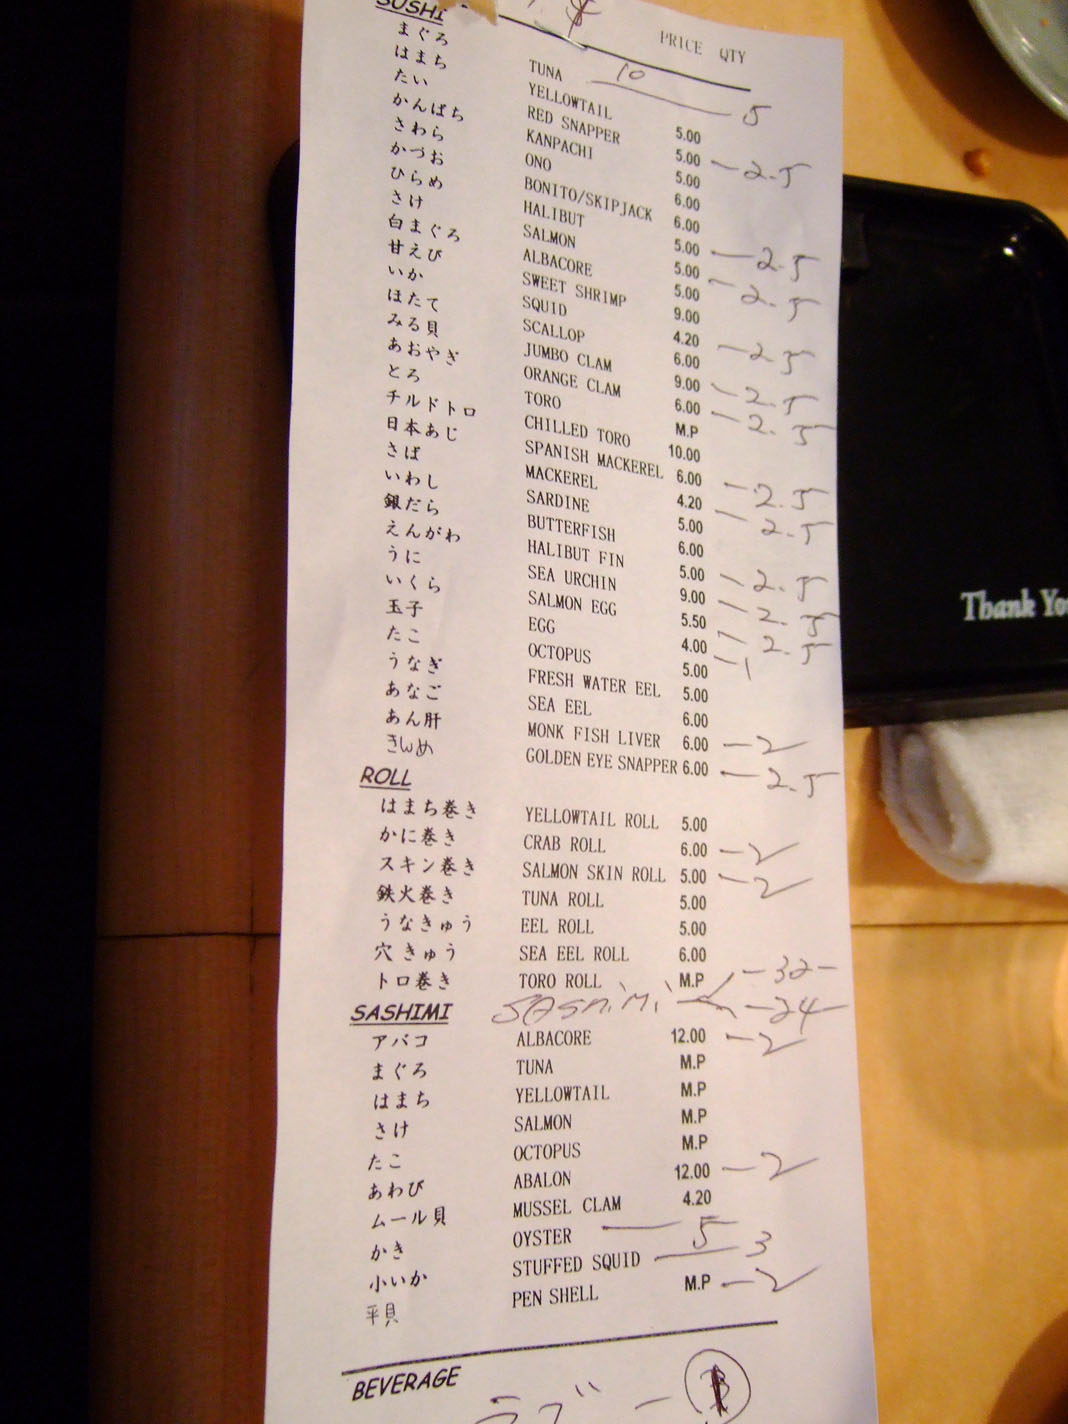 SUSHI PRICE QTY
まぐろ TUNA 10 5
はまち YELLOWTAIL 5.00
たい RED SNAPPER 5.00 - 2.5
かんぱち KANPACHI 5.00
さわら ONO 6.00
かづお BONITO/SKIPJACK 6.00
ひらめ HALIBUT 5.00 - 2.5
さけ SALMON 5.00 - 2.5
白まぐろ ALBACORE 5.00
甘えび SWEET SHRIMP 9.00
いか SQUID 4.20 - 2.5
ほたて SCALLOP 6.00
みる貝 JUMBO CLAM 9.00 - 2.5
あおやぎ ORANGE CLAM 6.00 - 2.5
とろ TORO M.P
チルドトロ CHILLED TORO 10.00
日本あじ SPANISH MACKEREL 6.00 - 2.5
さば MACKEREL 4.20 - 2.5
いわし SARDINE 5.00
銀だら BUTTERFISH 6.00
えんがわ HALIBUT FIN 5.00 - 2.5
うに SEA URCHIN 9.00 - 2.5
いくら SALMON EGG 5.50 - 2.5
玉子 EGG 4.00 - 1
たこ OCTOPUS 5.00
うなぎ FRESH WATER EEL 5.00
あなご SEA EEL 6.00
あん肝 MONK FISH LIVER 6.00 - 2
きんめ GOLDEN EYE SNAPPER 6.00 - 2.5
ROLL
はまち巻き YELLOWTAIL ROLL 5.00
かに巻き CRAB ROLL 6.00 - 2
スキン巻き SALMON SKIN ROLL 5.00 - 2
鉄火巻き TUNA ROLL 5.00
うなきゅう EEL ROLL 5.00
穴きゅう SEA EEL ROLL 6.00
トロ巻き TORO ROLL M.P - 32 -
SASHIMI SASHiMi - 24
アバコ ALBACORE 12.00 - 2
まぐろ TUNA M.P
はまち YELLOWTAIL M.P
さけ SALMON M.P
たこ OCTOPUS M.P
あわび ABALON 12.00 - 2
ムール貝 MUSSEL CLAM 4.20
かき OYSTER 5
小いか STUFFED SQUID 3
平貝 PEN SHELL M.P - 2
BEVERAGE
Thank You